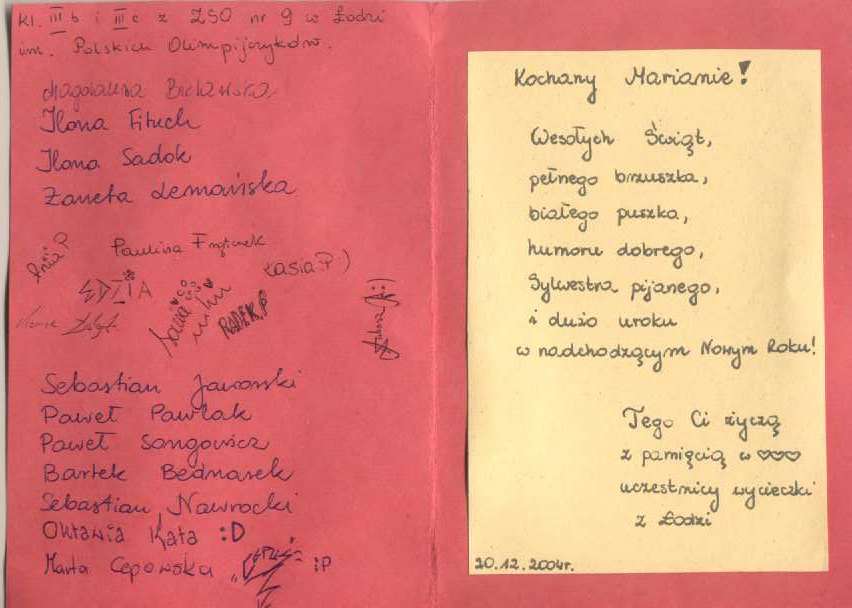 Kl. III b i III c z ZSO nr 9 w Łodzi
im. Polskich Olimpijczyków.
Magdalena
Ilona Fituch
Ilona Sadok
Żaneta Lemańska
Paulina
Kasia P :)
EDZIA
RADEK P
Sebastian Jaworski
Paweł Pawlak
Paweł Songowicz
Bartek Bednarek
Sebastian Nawrocki
Oktawia Kata :D
Marta Cepowska :P
Kochany Marianie!
Wesołych Świąt,
pełnego brzuszka,
białego puszka,
humoru dobrego,
Sylwestra pijanego,
i dużo uroku
w nadchodzącym Nowym Roku!
Tego Ci życzą
z pamięcią w ♡♡♡
uczestnicy wycieczki
z Łodzi
20.12.2004r.